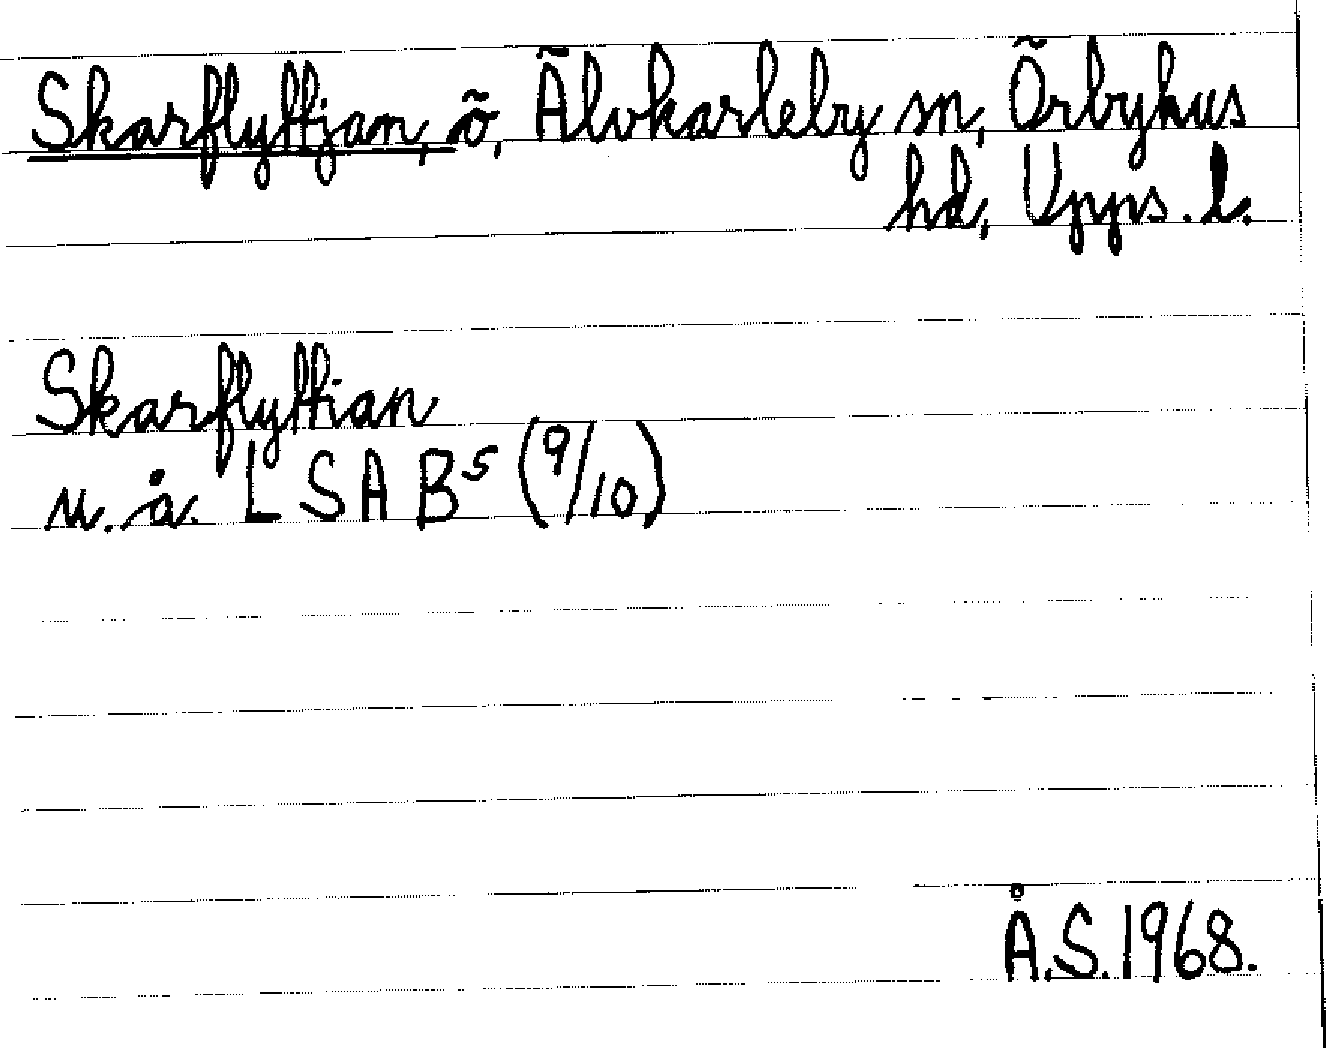 Skarflyttjan, ö, Älvkarleby sn, Örbyhus
hd, Upps. l.
Skarflyttian
u. å. L S A B⁵ (9/10)
Å.S. 1968.